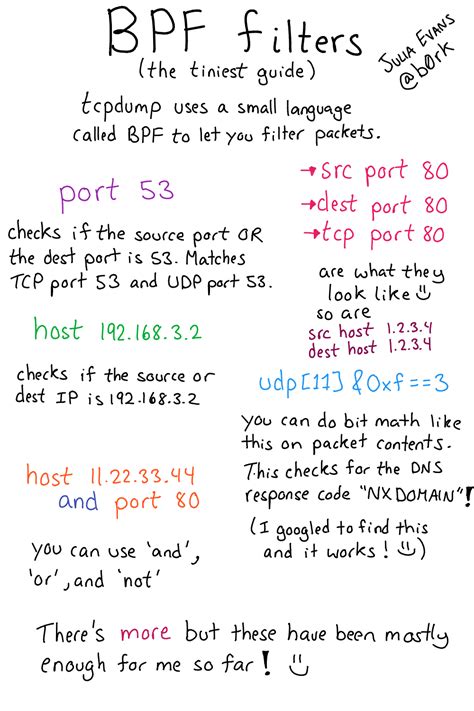 BPF filters
(the tiniest guide)
JULIA EVANS
@b0rk
tcpdump uses a small language
called BPF to let you filter packets.
port 53
checks if the source port OR
the dest port is 53. Matches
TCP port 53 and UDP port 53.
host 192.168.3.2
checks if the source or
dest IP is 192.168.3.2
host 11.22.33.44
and port 80
you can use 'and',
'or', and 'not'
→src port 80
→dest port 80
→tcp port 80
are what they
look like
so are
src host 1.2.3.4
dest host 1.2.3.4
udp[11]&0xf==3
you can do bit math like
this on packet contents.
This checks for the DNS
response code "NXDOMAIN"!
(I googled to find this
and it works! :))
There's more but these have been mostly
enough for me so far! :)